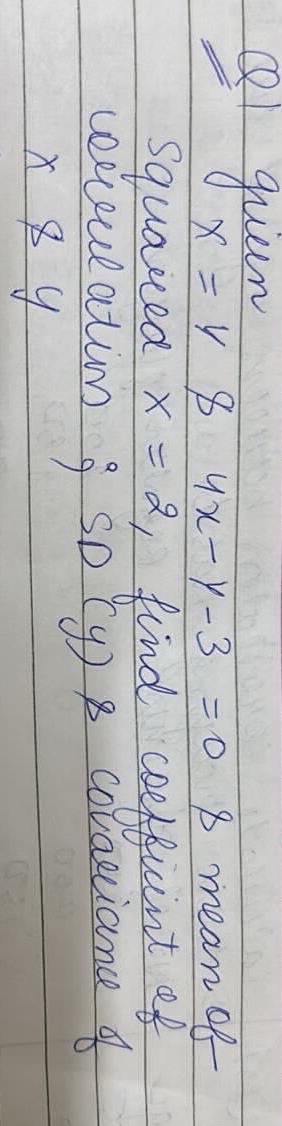 Q1 given
x = y & 4x - y - 3 = 0 & mean of
squared x = 2, find coefficient of
correlation ; SD (y) & covariance of
x & y